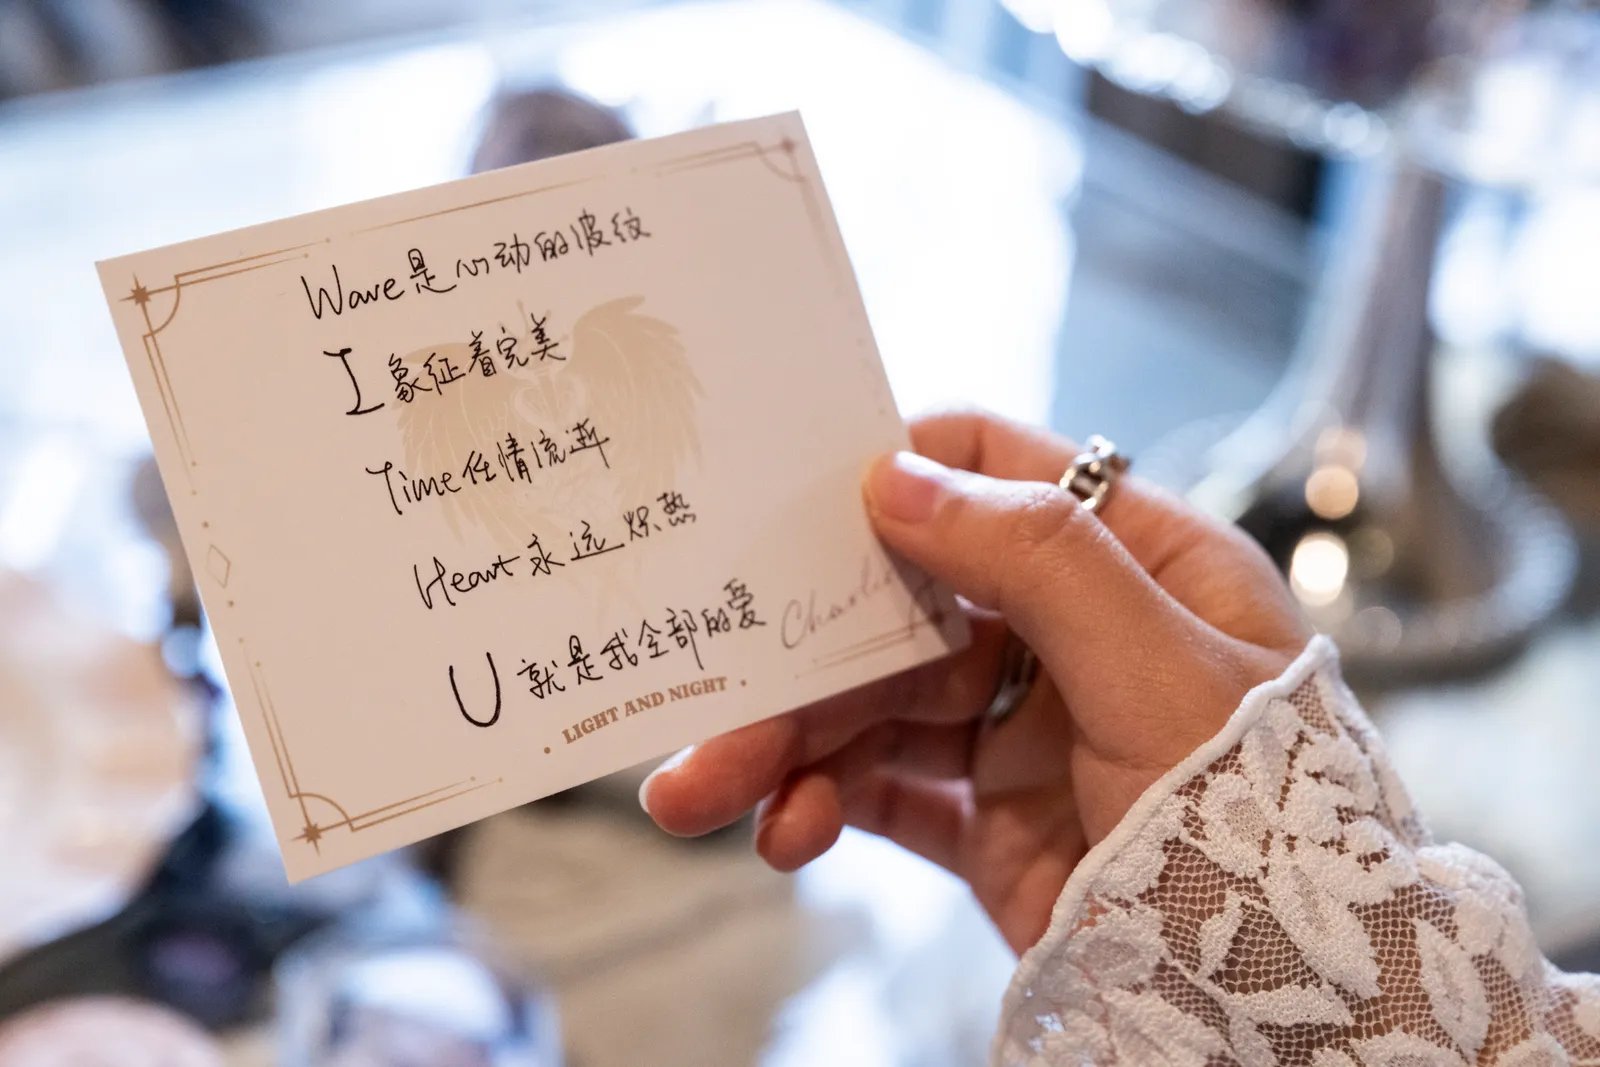 Wave是心动的波纹
I象征着完美
Time任情流逝
Heart永远炽热
U就是我全部的爱
Charlie
• LIGHT AND NIGHT •